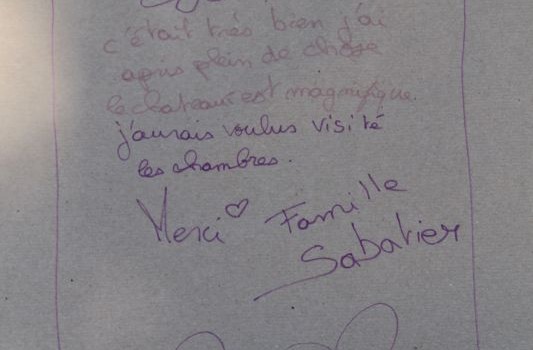 c'était très bien j'ai
apris plein de chose
le chateau est magnifique.
j'aurais voulus visité
les chambres.
Merci ♡ Famille
Sabatier